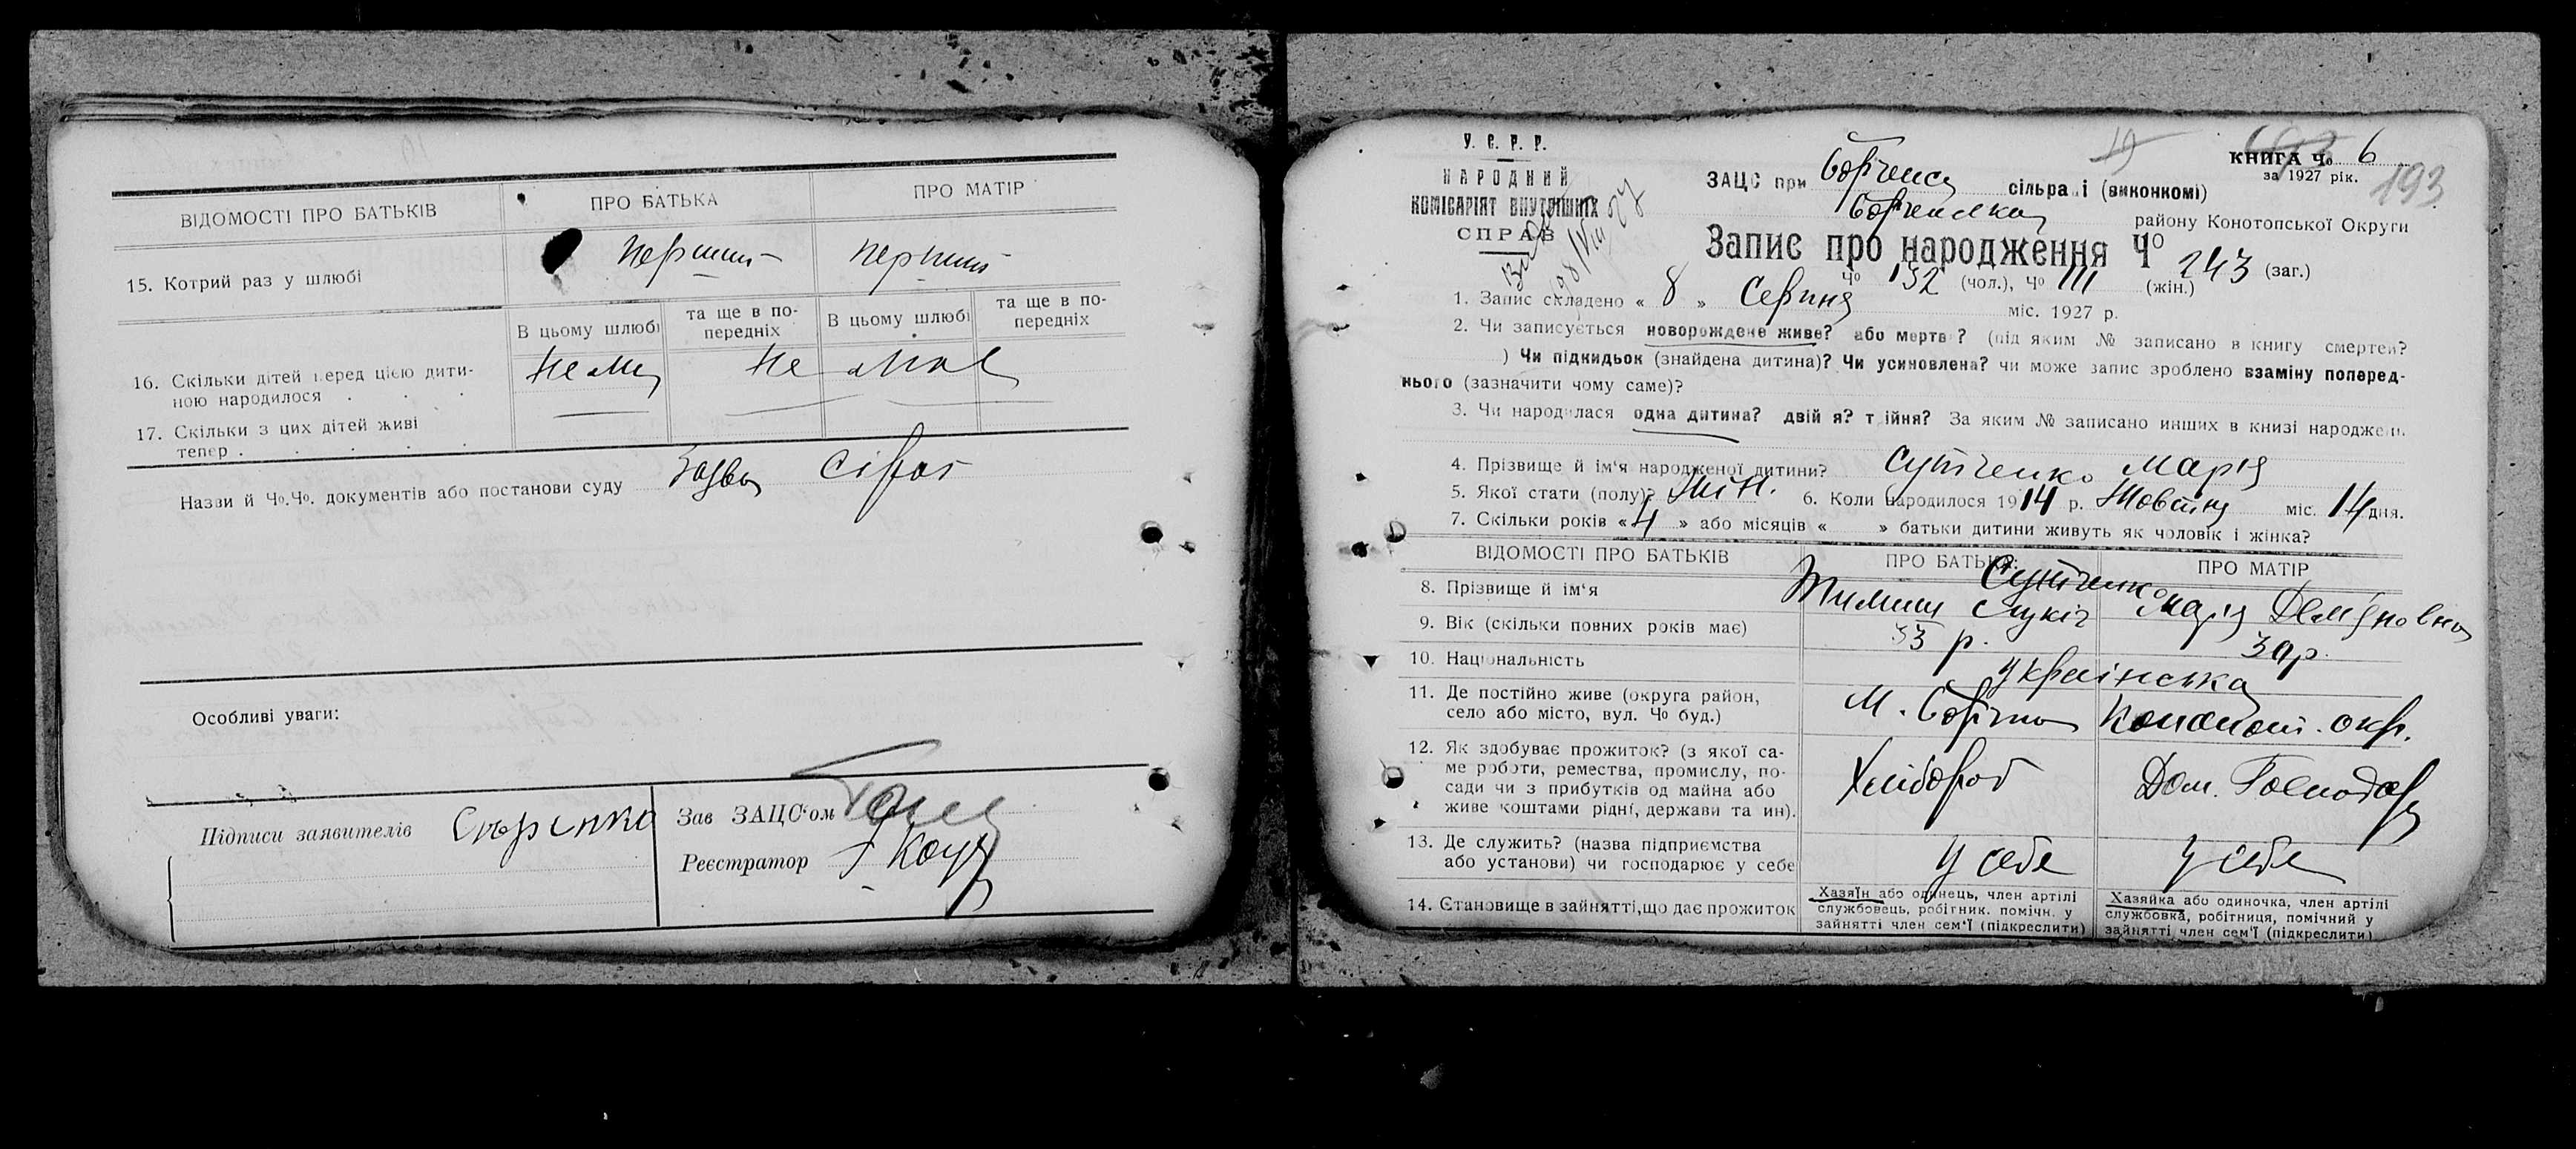 ВІДОМОСТІ ПРО БАТЬКІВ
ПРО БАТЬКА
ПРО МАТІР
15. Котрий раз у шлюбі
Перший
перший
В цьому шлюбі
та ще в по-
передніх
В цьому шлюбі
та ще в по-
передніх
16. Скільки дітей перед цією дити-
ною народилося . . .
Не
має
17. Скільки з цих дітей живі
тепер . . . .
Назви й Чо.Чо. документів або постанови суду
Особливі уваги:
Підписи заявителів
Зав ЗАЦС'ом
Реєстратор
У. С. Р. Р.
НАРОДНИЙ
КОМІСАРІЯТ ВНУТРІШНІХ
СПРАВ
ЗАЦС при
сільраді (виконкомі)
КНИГА Чо 6
за 1927 рік.
193
району Конотопської Округи
Запис про народження Чо 243 (заг.)
Чо 132 (чол.), Чо 111 (жін.)
1. Запис складено « 8 » Серпня міс. 1927 р.
2. Чи записується новорождене живе? або мертве? (під яким № записано в книгу смертей?
) Чи підкидьок (знайдена дитина)? Чи усиновлена? чи може запис зроблено взаміну поперед-
нього (зазначити чому саме)?
3. Чи народилася одна дитина? двійня? трійня? За яким № записано инших в книзі народжень
4. Прізвище й ім'я народженої дитини? Сутченко Марія
5. Якої стати (полу)? Жін. 6. Коли народилося 1914 р. Жовтня міс. 14 дня.
7. Скільки років « 4 » або місяців « » батьки дитини живуть як чоловік і жінка?
ВІДОМОСТІ ПРО БАТЬКІВ
ПРО БАТЬКА
ПРО МАТІР
8. Прізвище й ім'я
Сутченко
Тимиш Лукіч
Марія Демяновна
9. Вік (скільки повних років має)
33 р.
30р.
10. Національність
Українська
11. Де постійно живе (округа район,
село або місто, вул. Чо буд.)
М. Конотоп. окр.
12. Як здобуває прожиток? (з якої са-
ме роботи, ремества, промислу, по-
сади чи з прибутків од майна або
живе коштами рідні, держави та ин).
Хлібороб
Дом. Господар
13. Де служить? (назва підприємства
або установи) чи господарює у себе
У себе
У себе
14. Становище в зайнятті, що дає прожиток
Хазяїн або одинець, член артілі
службовець, робітник. помічн. у
зайнятті член сем'ї (підкреслити)
Хазяйка або одиночка, член артілі
службовка, робітниця, помічний у
зайнятті член сем'ї (підкреслити)